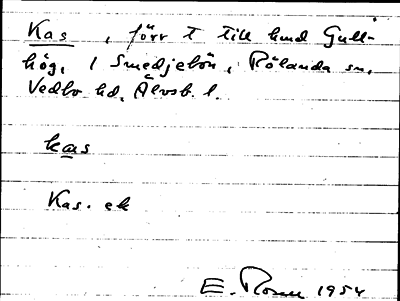 Kas , förr t till hmd Gull-
hög, / Smedjebön, Rölanda sn,
Vedbo hd. Älvsb. l.
kas
Kas. ek
E. 1954